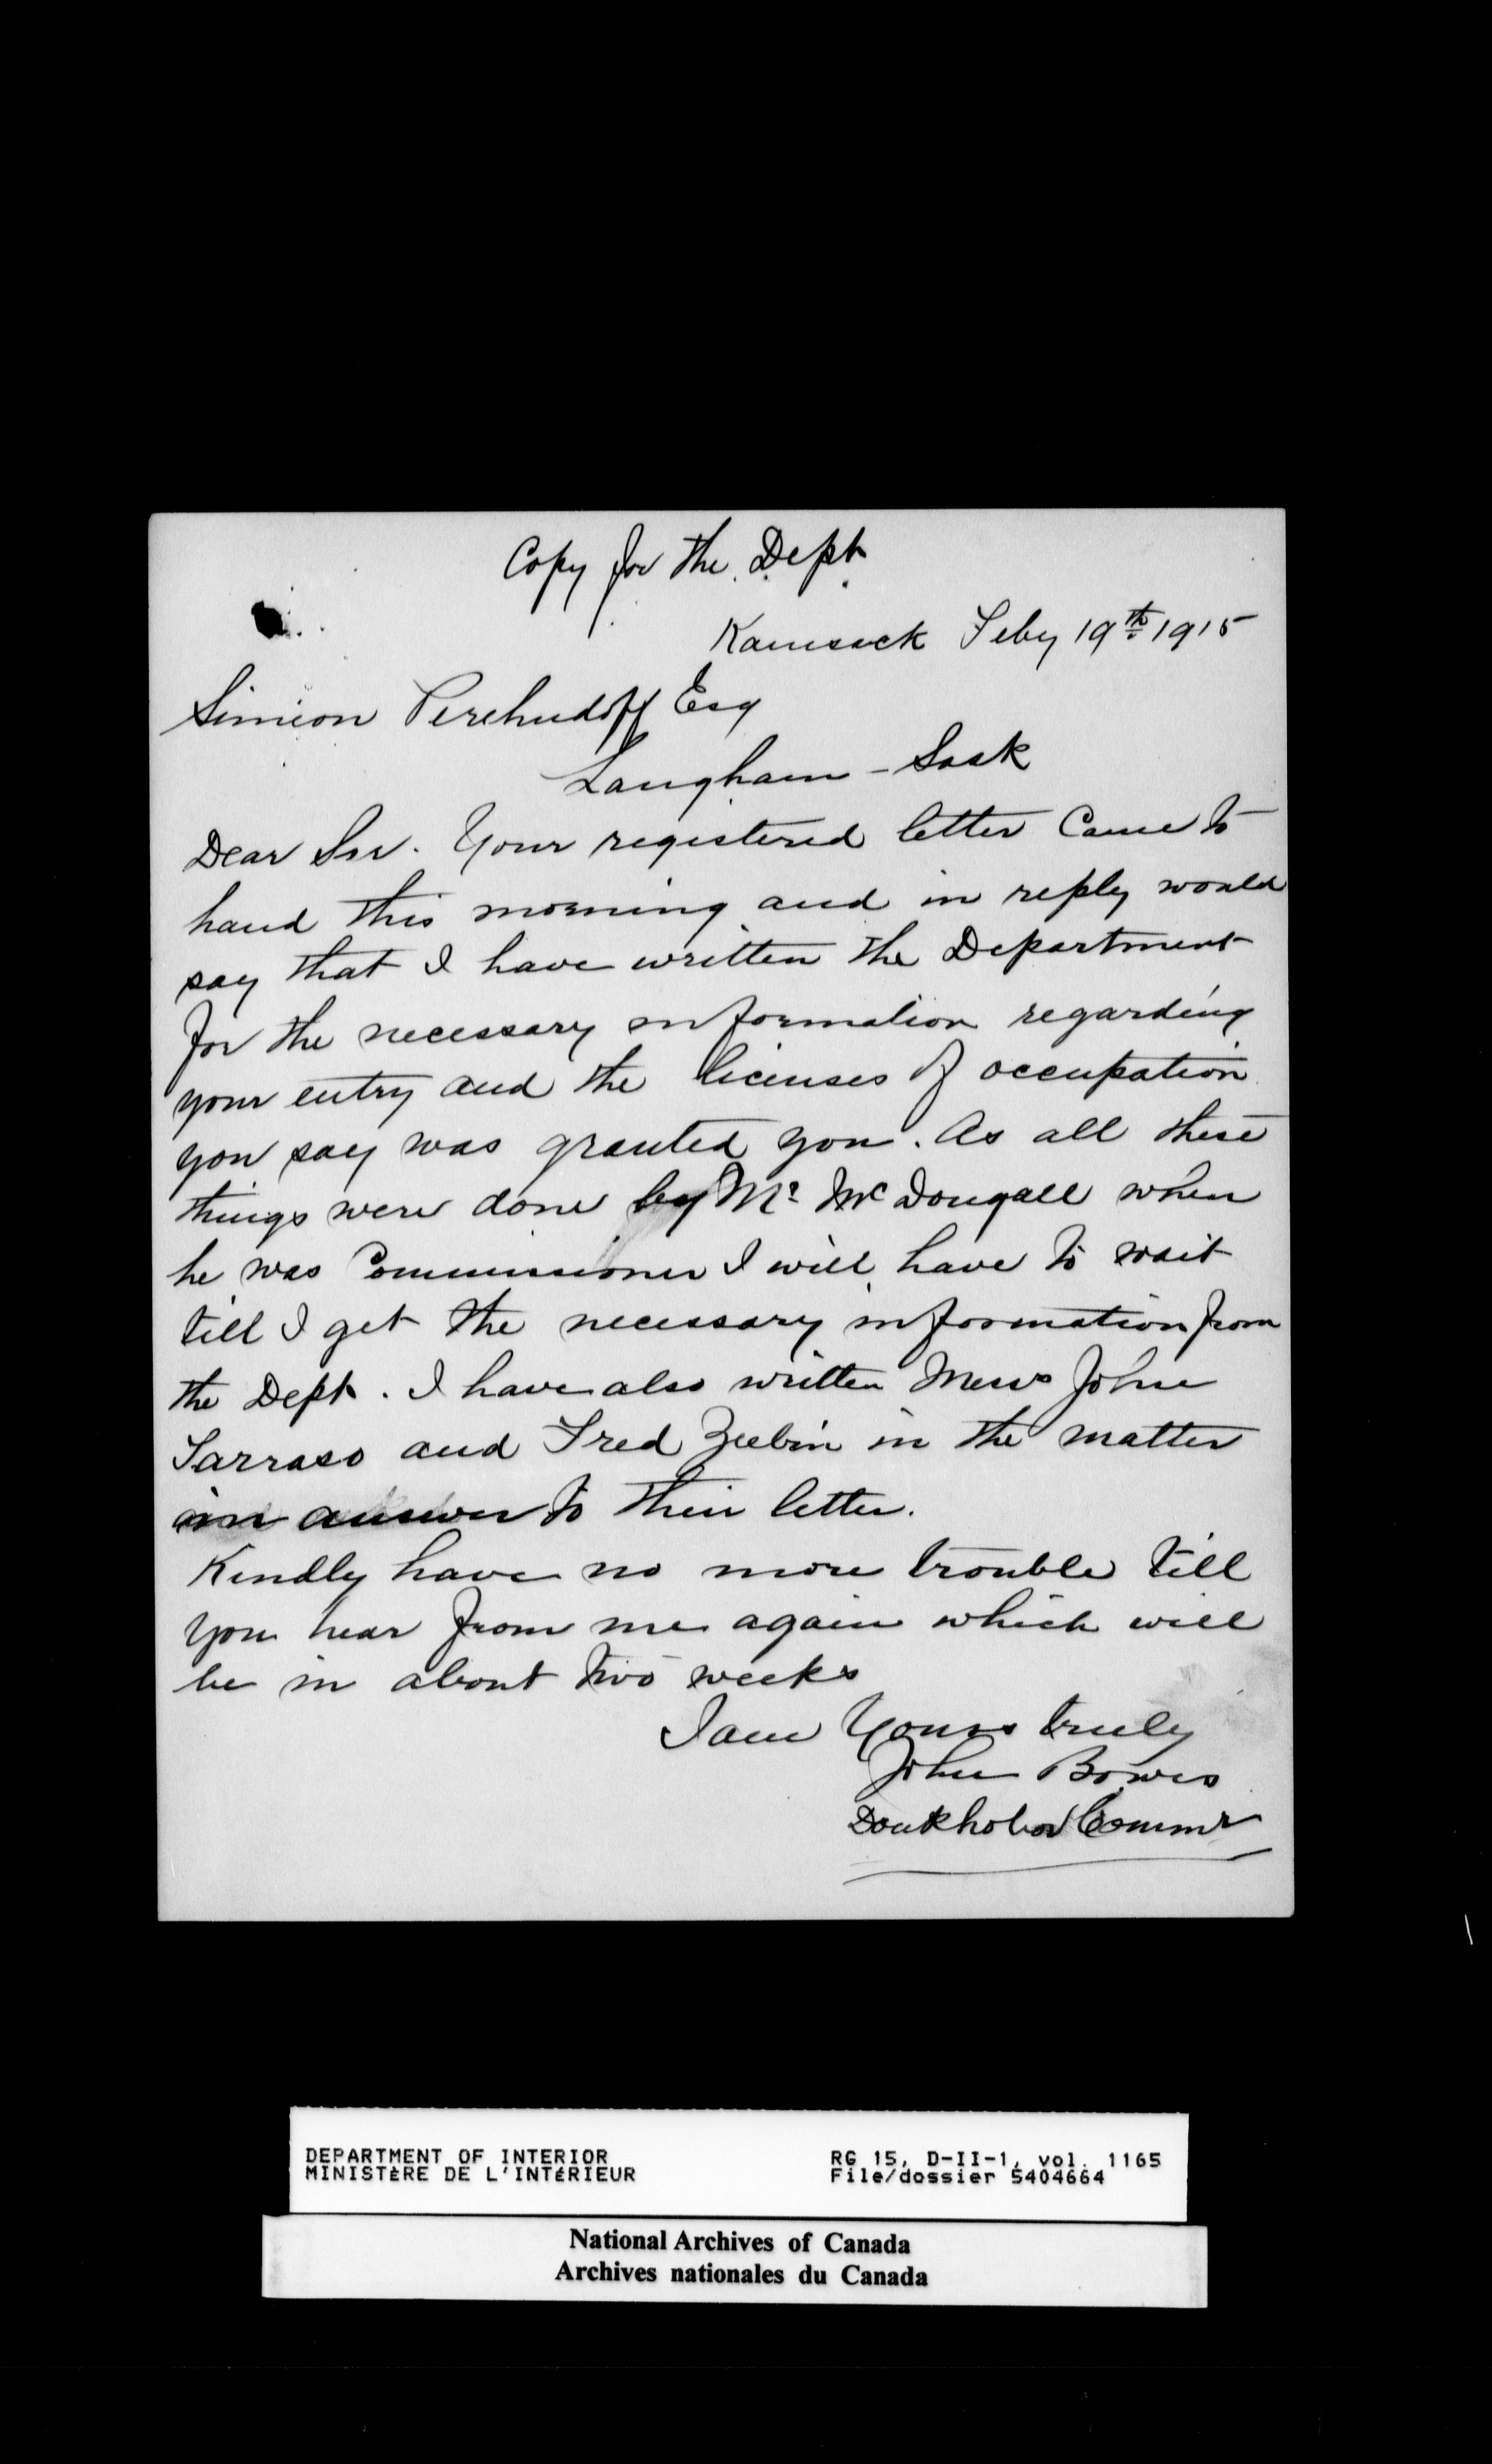 Copy for the Dept
Kamsack Feby 19th 1915
Simeon Perehudoff Esq
Langham - Sask
Dear Sir. Your registered letter Came to
hand this morning and in reply would
say that I have written the Department
for the necessary information regarding
your entry and the licenses of occupation
you say was granted you. As all these
things were done by Mr McDougall when
he was Commissioner I will have to wait
till I get the necessary information from
the Dept. I have also written Messrs John
Tarraso and Fred Zeebin in the matter
in answer to their letter.
Kindly have no more trouble till
you hear from me again which will
be in about two weeks
I am Yours truly
John Bowes
Doukhobor Commr
DEPARTMENT OF INTERIOR
MINISTÈRE DE L'INTÉRIEUR
RG 15, D-II-1, vol. 1165
File/dossier 5404664
National Archives of Canada
Archives nationales du Canada